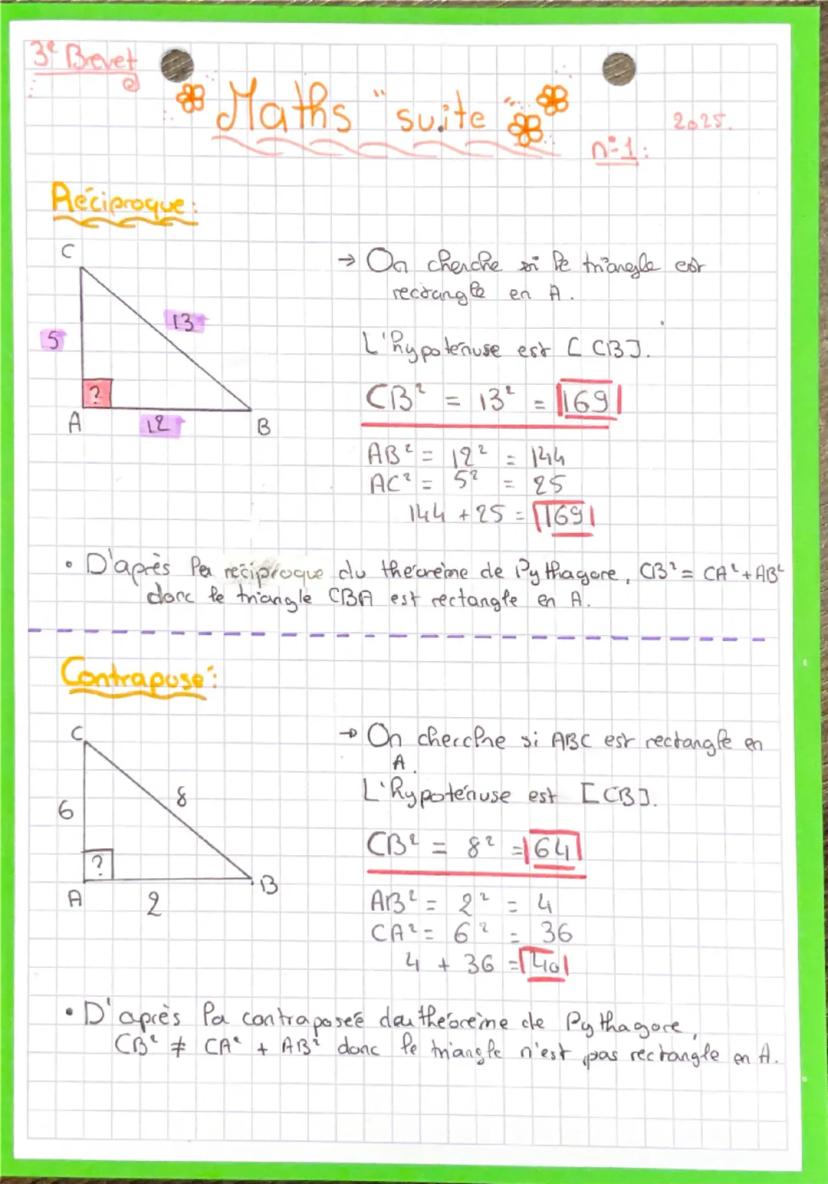 3e Brevet
Maths "suite"
2025.
n°1:
Réciproque:
C
5
13
?
A
12
B
→ On cherche si le triangle est
rectangle en A.
L'hypoténuse est [CB].
CB² = 13² = 169
AB² = 12² = 144
AC² = 5² = 25
144 + 25 = 169
• D'après la réciproque du théorème de Pythagore, CB² = CA² + AB²
donc le triangle CBA est rectangle en A.
Contraposé:
C
6
8
?
A
2
B
→ On cherche si ABC est rectangle en
A.
L'hypoténuse est [CB].
CB² = 8² = 64
AB² = 2² = 4
CA² = 6² = 36
4 + 36 = 40
• D'après la contraposée du théorème de Pythagore,
CB² ≠ CA² + AB² donc le triangle n'est pas rectangle en A.